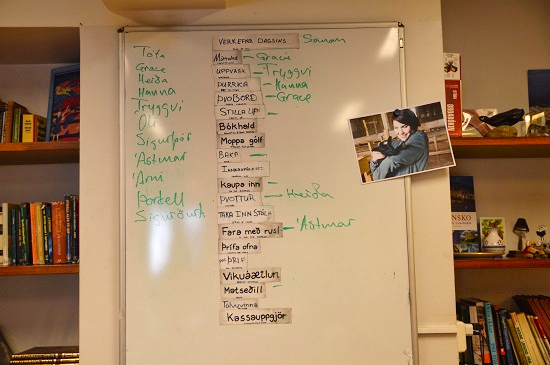 VERKEFNI DAGSINS Saman
Tóta
Grace
Heiða
Hanna
Tryggvi
Oli
Sigurþór
Ástmar
Árni
Sigurður K
Matur – Grace
UPPVASK – Tryggvi
ÞURRKA – Hanna
ÞVO BORÐ – Grace
STILLA UPP –
Bókhald
Moppa gólf
BAKA –
Kaupa inn –
ÞVOTTUR – Heiða
TAKA INN STÓLA
Fara með rusl – Ástmar
Þrífa ofna
ÞRIF
Vikuáætlun
Matseðill –
Tölvuvinna
Kassauppgjör